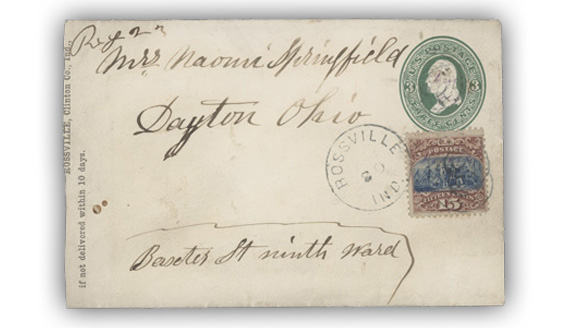 Reg 22
Mrs Naomi Springfield
Dayton Ohio
Baxter St ninth Ward
ROSSVILLE, Clinton Co., Ind.,
if not delivered within 10 days.
U.S. POSTAGE
3 3
THREE CENTS
ROSSVILLE
IND.
POSTAGE
FIFTEEN CENTS
15